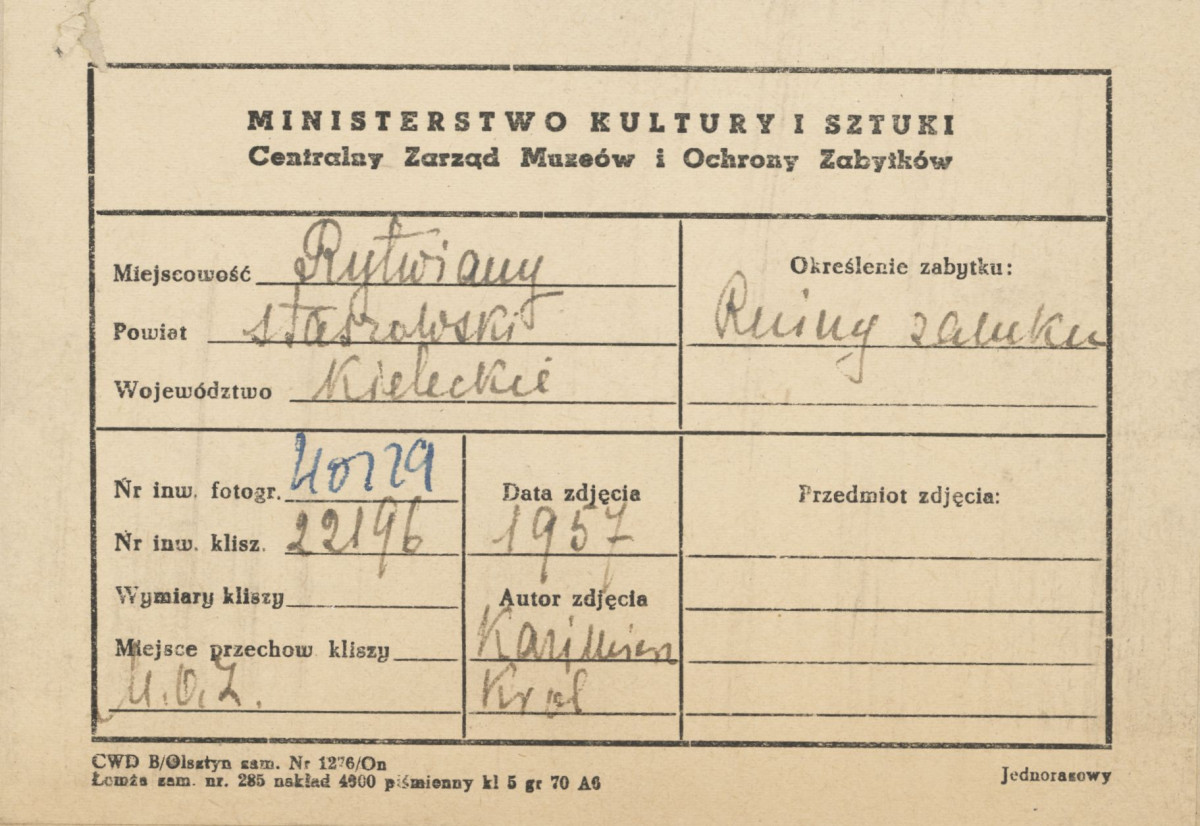 MINISTERSTWO KULTURY I SZTUKI
Centralny Zarząd Muzeów i Ochrony Zabytków
Miejscowość Rytwiany
Powiat staszowski
Województwo Kieleckie
Określenie zabytku:
Ruiny zamku
Nr inw. fotogr.
Nr inw. klisz. 22196
Wymiary kliszy
Miejsce przechow kliszy
M.O.Z.
Data zdjęcia
1957
Autor zdjęcia
Kazimierz
Król
Przedmiot zdjęcia:
CWD B/Olsztyn zam. Nr 1276/On
Łomża zam. nr. 285 nakład 4900 piśmienny kl 5 gr 70 A6
Jednorazowy